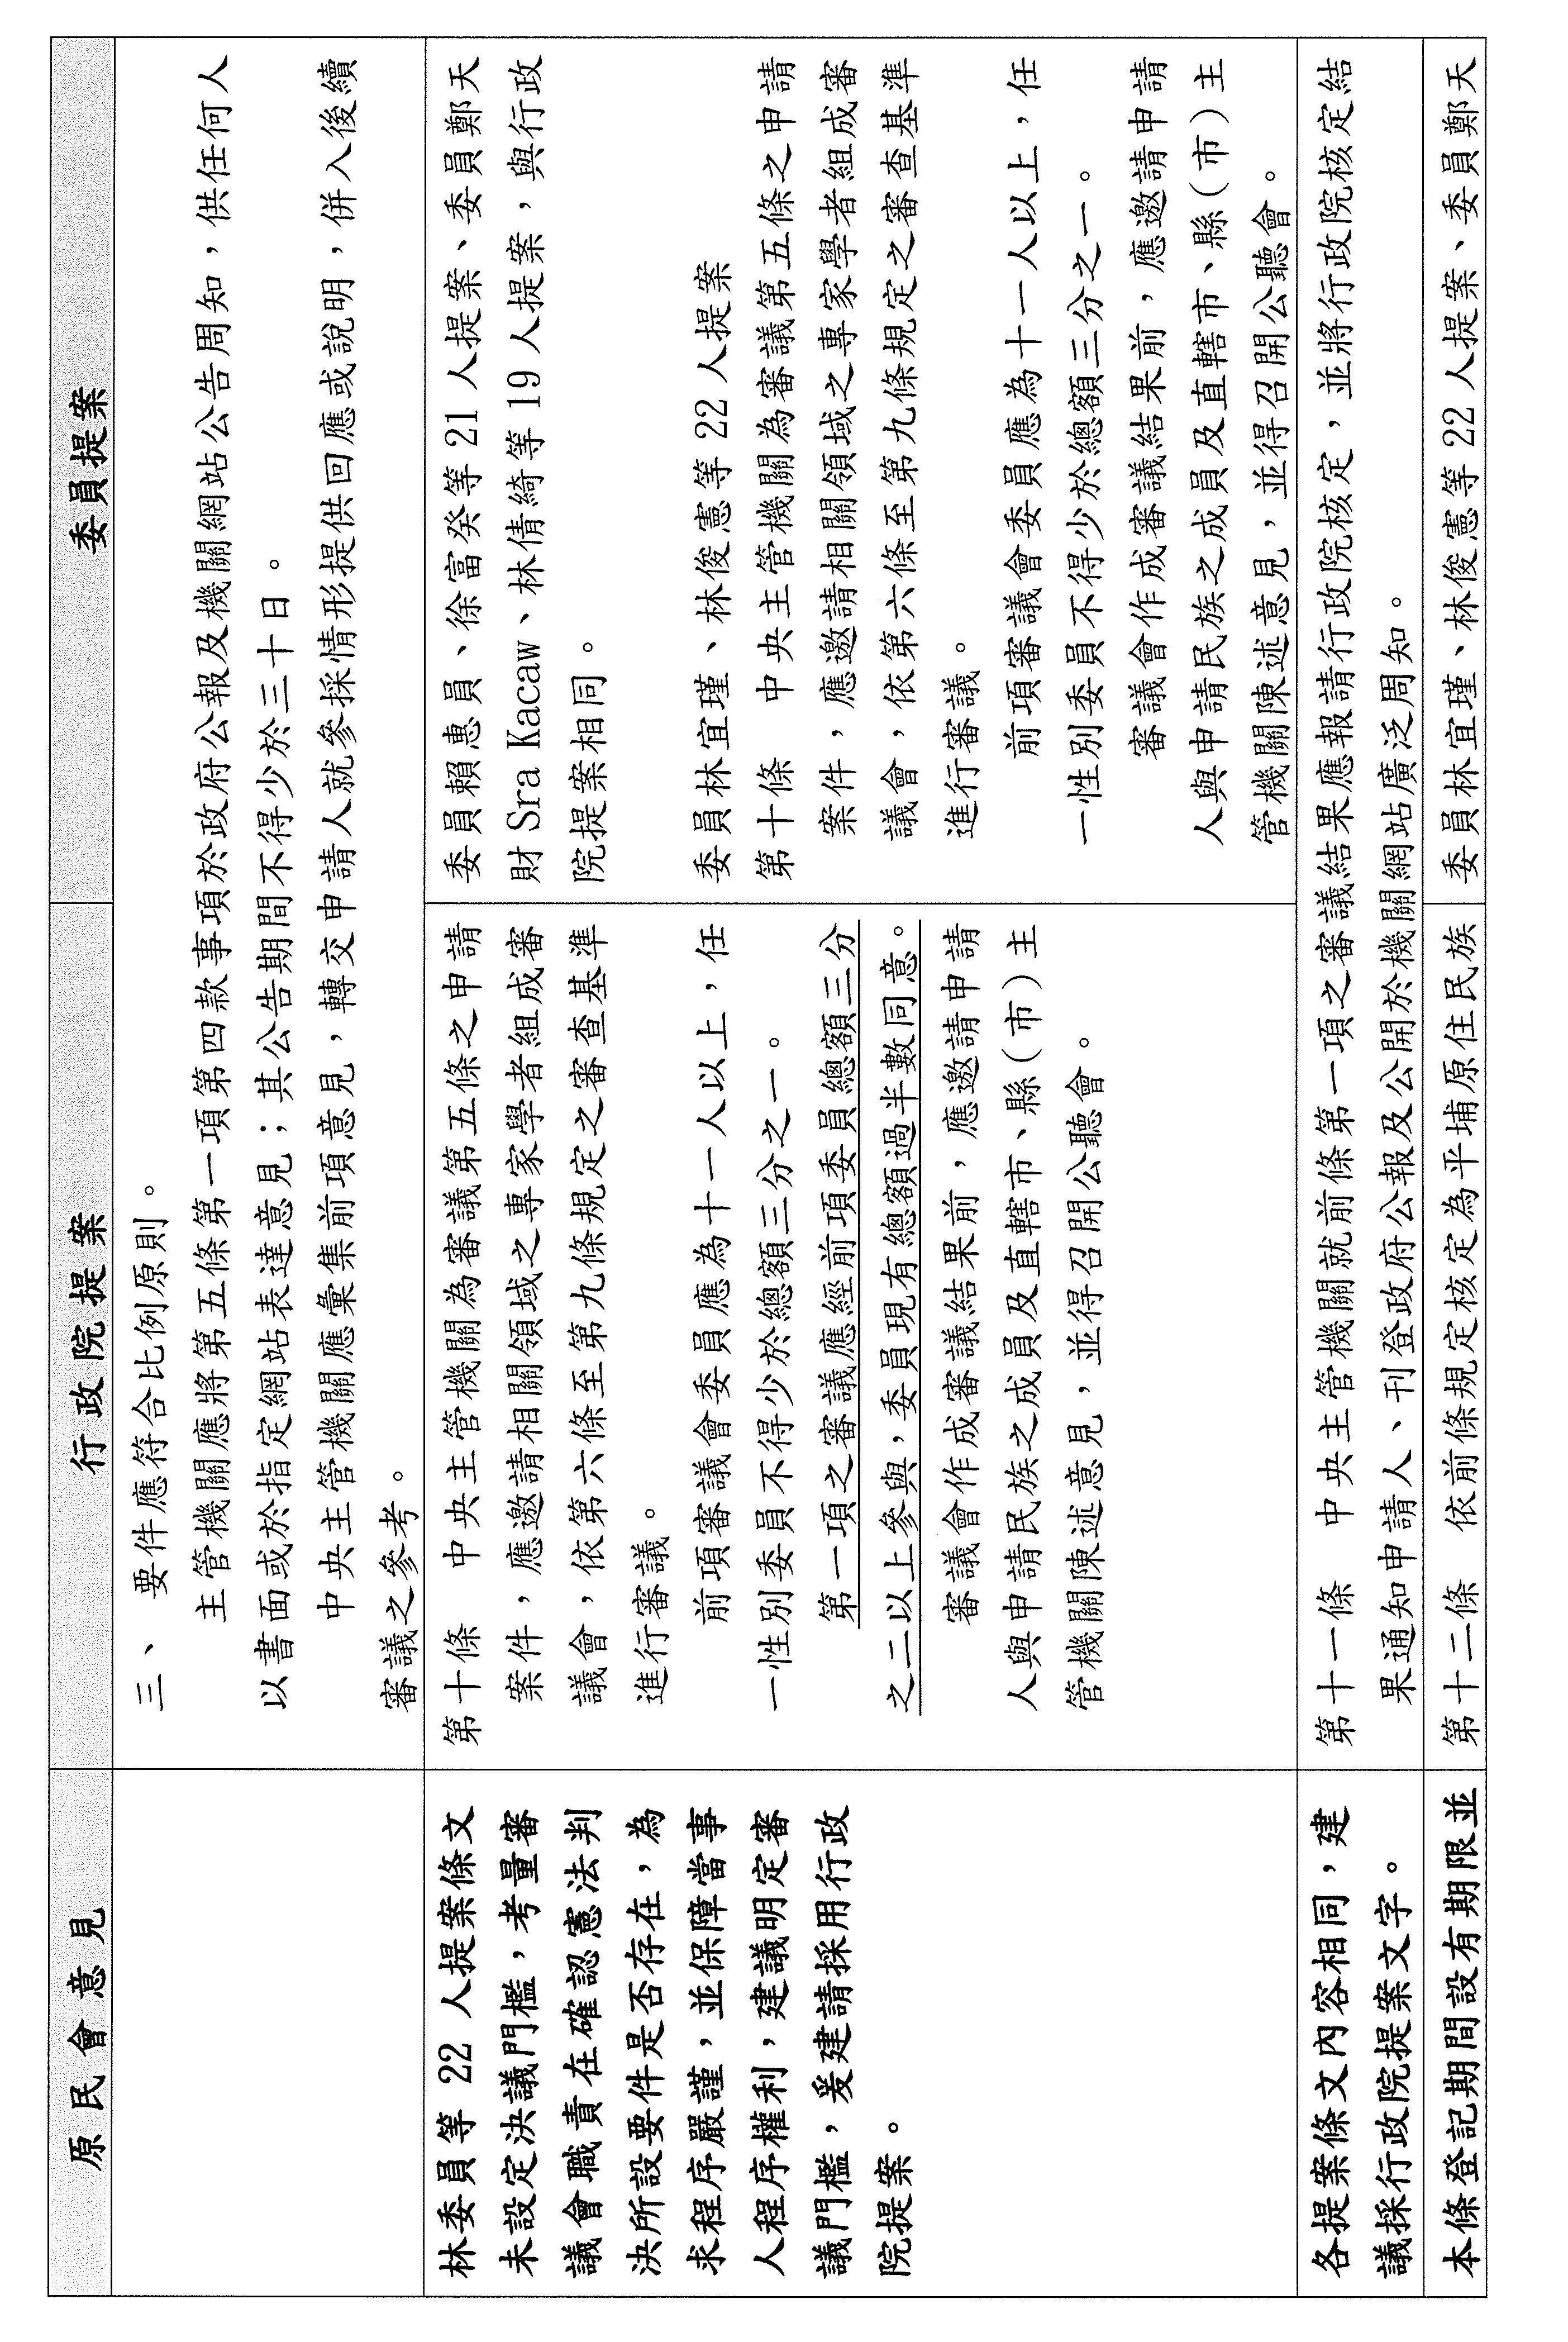 原民會意見
行政院提案
委員提案
三、要件應符合比例原則。
主管機關應將第五條第一項第四款事項於政府公報及機關網站公告周知，供任何人
以書面或於指定網站表達意見；其公告期間不得少於三十日。
中央主管機關應彙集前項意見，轉交申請人就參採情形提供回應或說明，併入後續
審議之參考。
林委員等 22 人提案條文
未設定決議門檻，考量審
議會職責在確認憲法判
決所設要件是否存在，為
求程序嚴謹，並保障當事
人程序權利，建議明定審
議門檻，爰建請採用行政
院提案。
第十條　中央主管機關為審議第五條之申請
案件，應邀請相關領域之專家學者組成審
議會，依第六條至第九條規定之審查基準
進行審議。
前項審議會委員應為十一人以上，任
一性別委員不得少於總額三分之一。
第一項之審議應經前項委員總額三分
之二以上參與，委員現有總額過半數同意。
審議會作成審議結果前，應邀請申請
人與申請民族之成員及直轄市、縣（市）主
管機關陳述意見，並得召開公聽會。
委員賴惠員、徐富癸等 21 人提案、委員鄭天
財 Sra Kacaw、林倩綺等 19 人提案，與行政
院提案相同。
委員林宜瑾、林俊憲等 22 人提案
第十條　中央主管機關為審議第五條之申請
案件，應邀請相關領域之專家學者組成審
議會，依第六條至第九條規定之審查基準
進行審議。
前項審議會委員應為十一人以上，任
一性別委員不得少於總額三分之一。
審議會作成審議結果前，應邀請申請
人與申請民族之成員及直轄市、縣（市）主
管機關陳述意見，並得召開公聽會。
各提案條文內容相同，建
議採行政院提案文字。
第十一條　中央主管機關就前條第一項之審議結果應報請行政院核定，並將行政院核定結
果通知申請人、刊登政府公報及公開於機關網站廣泛周知。
本條登記期間設有期限並
第十二條　依前條規定核定為平埔原住民族
委員林宜瑾、林俊憲等 22 人提案、委員鄭天